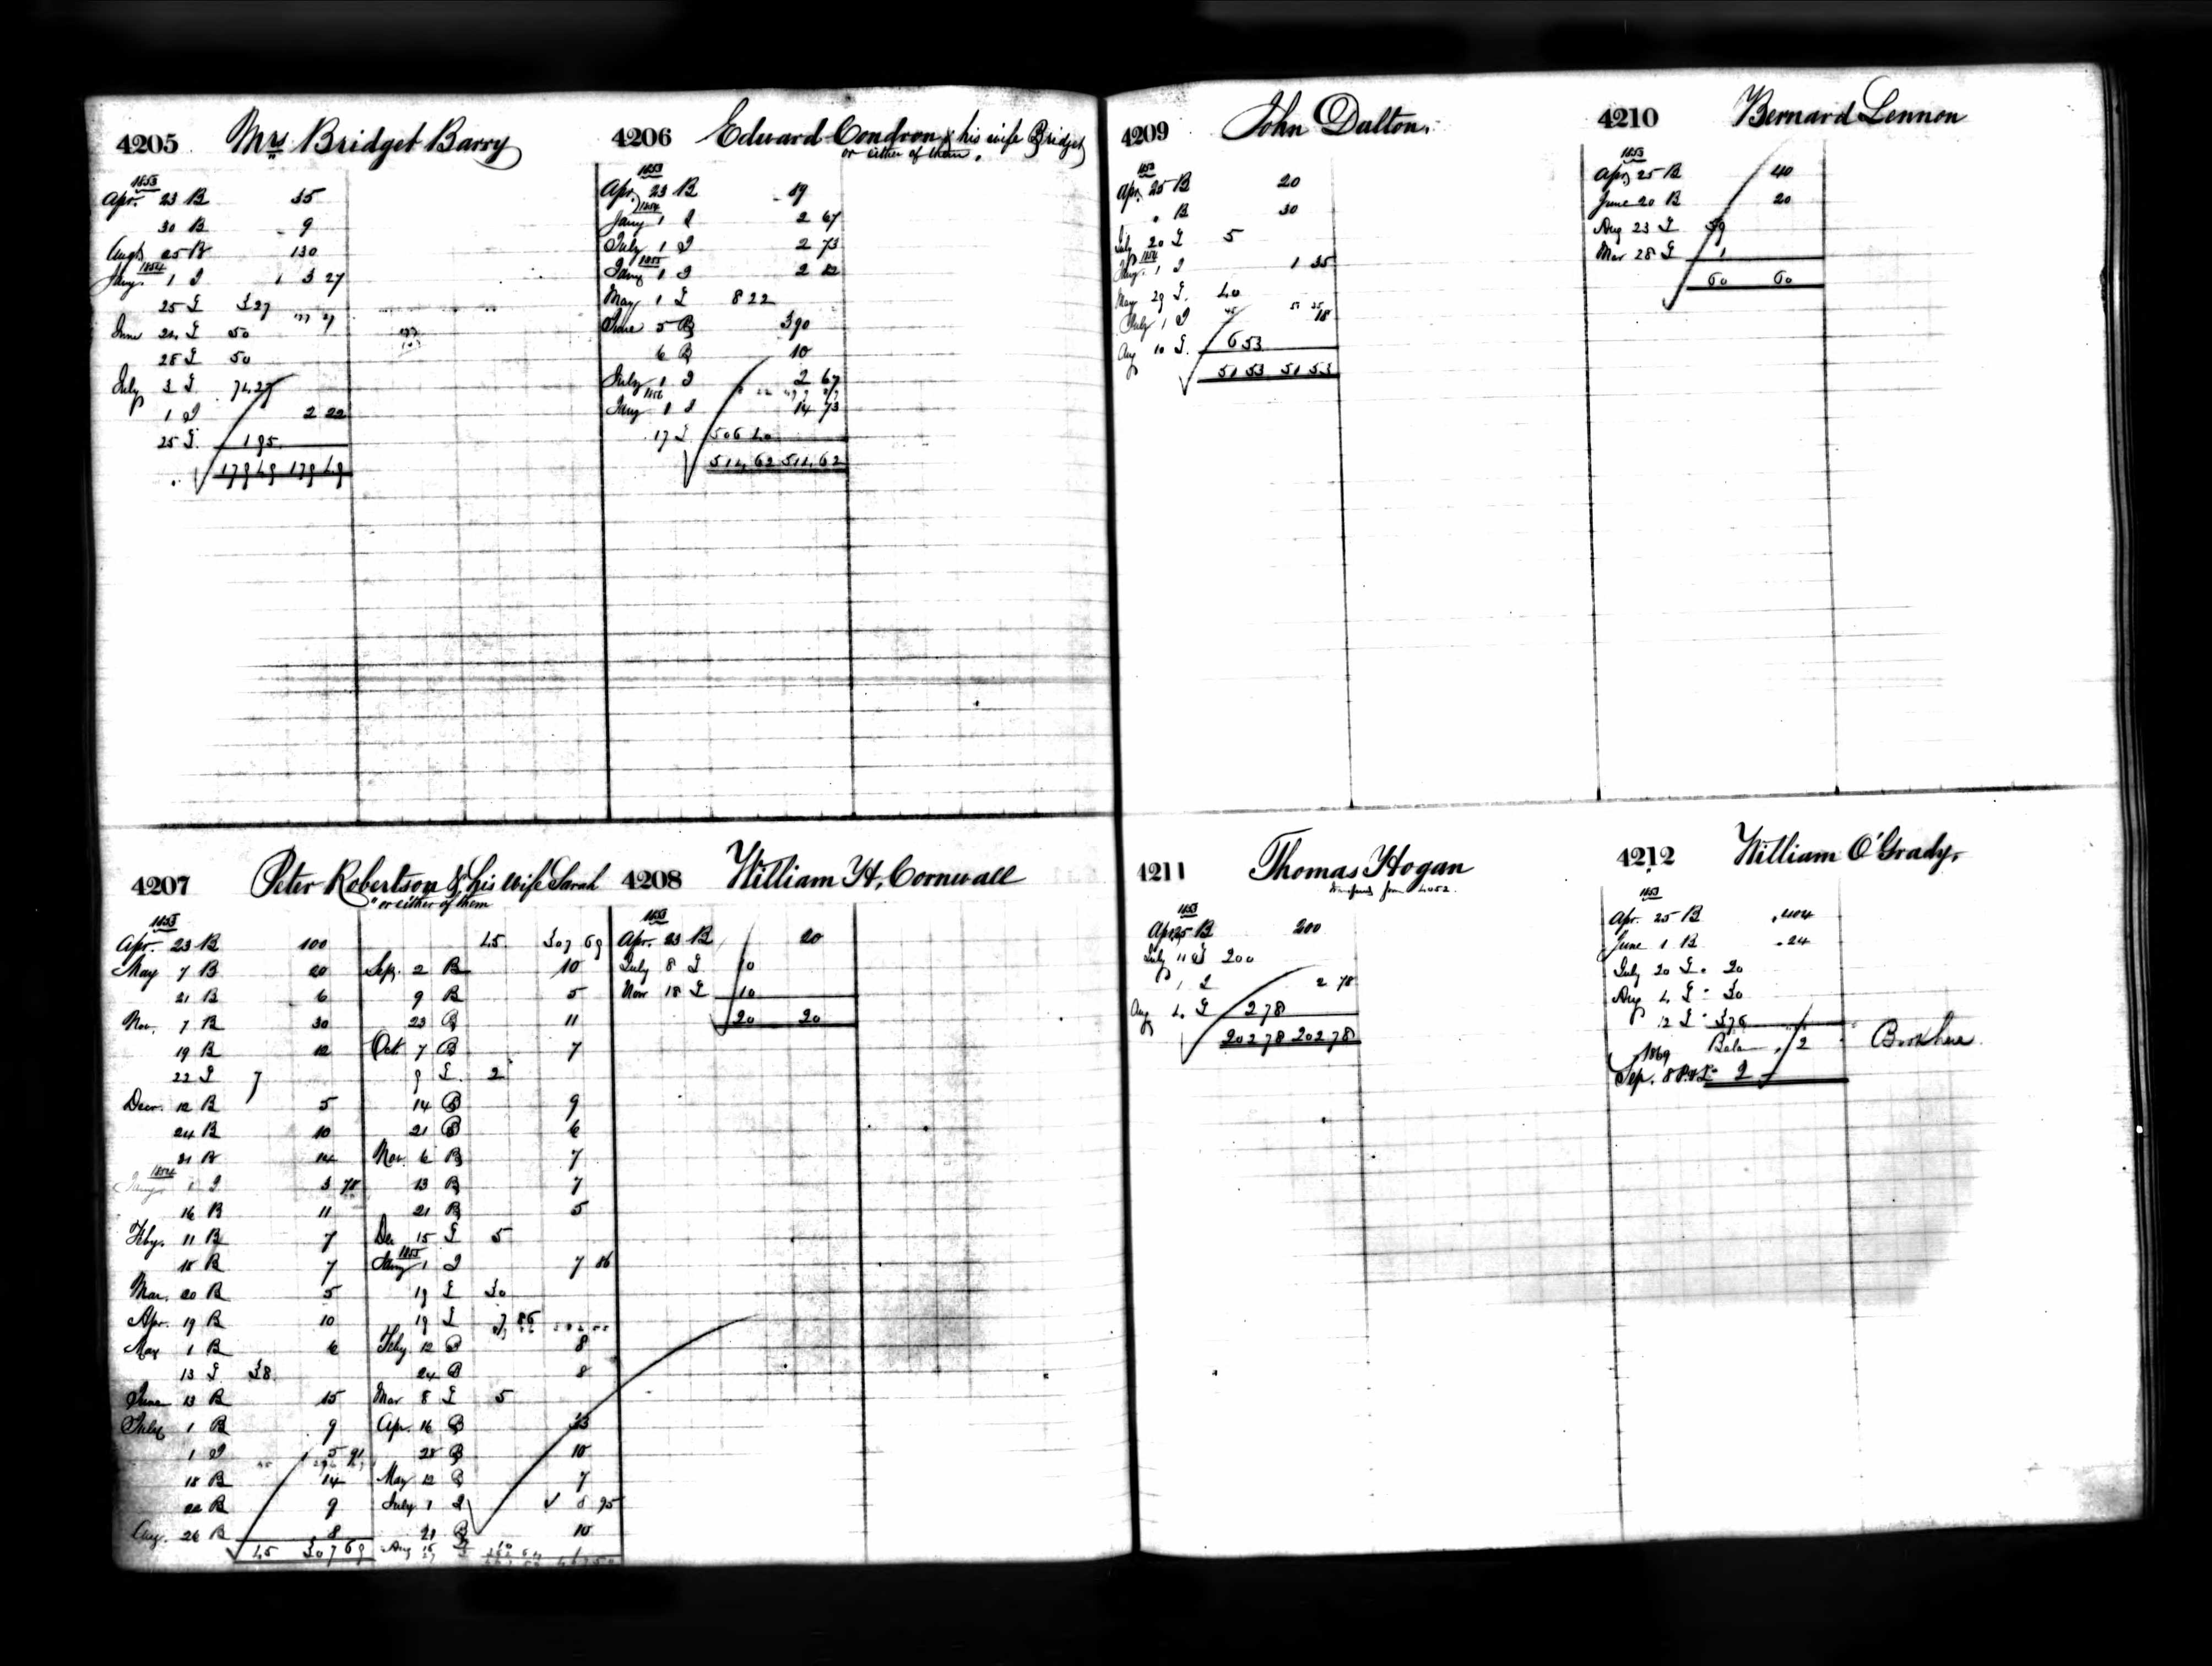 4205 Mrs Bridget Barry
1853
Apr. 23 B 35
30 B 9
Augt 25 B 130
1854
Jany. 1 I 3 27
25 L 3 27
June 24 L 50
28 L 50
July 3 L 74.27
1 I 2 22
25 L 1 95
179 49 179 49
4206 Edward Condron & his wife Bridget
or either of them.
1853
Apr. 23 B 89
1854
Jany 1 I 2 67
July 1 I 2 73
1855
Jany 1 I 2 82
May 1 L 8 22
June 5 B 390
6 B 10
July 1 I 2 67
1856
Jany 1 I 14 73
17 L 506 40
514,62 514,62
4207 Peter Robertson & his wife Sarah
"or either of them
1853
Apr. 23 B 100
May 7 B 20
21 B 6
Nov. 7 B 30
19 B 12
22 L 7
Decr. 12 B 5
24 B 10
31 B 14
1854
Jany 1 I 3 78
16 B 11
Feby. 11 B 7
18 B 7
Mar. 20 B 5
Apr. 19 B 10
May 1 B 6
13 L 38
June 13 B 15
July 1 B 9
1 I 5 91
18 B 14
22 B 9
Aug. 26 B 8
45 307 69
45 307 69
Sep. 2 B 10
9 B 5
23 B 11
Oct. 7 B 7
9 L 2
14 B 9
21 B 6
Nov. 6 B 7
13 B 7
21 B 5
Dec 15 L 5
1855
Jany 1 I 7 86
19 L 30
19 L 7 86
Feby 12 B 8
24 B 8
Mar 8 L 5
Apr. 16 B 33
28 B 10
May 12 B 7
July 1 I 8 95
21 B 10
Aug
4208 William H. Cornwall
1853
Apr. 23 B 20
July 8 L 10
Nov 18 L 10
20 20
4209 John Dalton.
1853
Apr. 25 B 20
" B 30
July 20 L 5
1854
Jany. 1 I 1 35
May 29 L. 40
July 1 I 18
Aug 10 L. 6 53
51 53 51 53
4210 Bernard Lennon
1853
Apr. 25 B 40
June 20 B 20
Aug 23 L 59
Mar 28 L 1
60 60
4211 Thomas Hogan
from 4052.
1853
Apr. 25 B 200
July 11 L 200
1 I 2 78
Aug 4 L 2 78
202 78 202 78
4212 William O'Grady.
1853
Apr. 25 B 404
June 1 B 24
July 20 L. 20
Aug 4 L 30
12 L 376
Balan 2
1869
Sep. 8 2
Book here